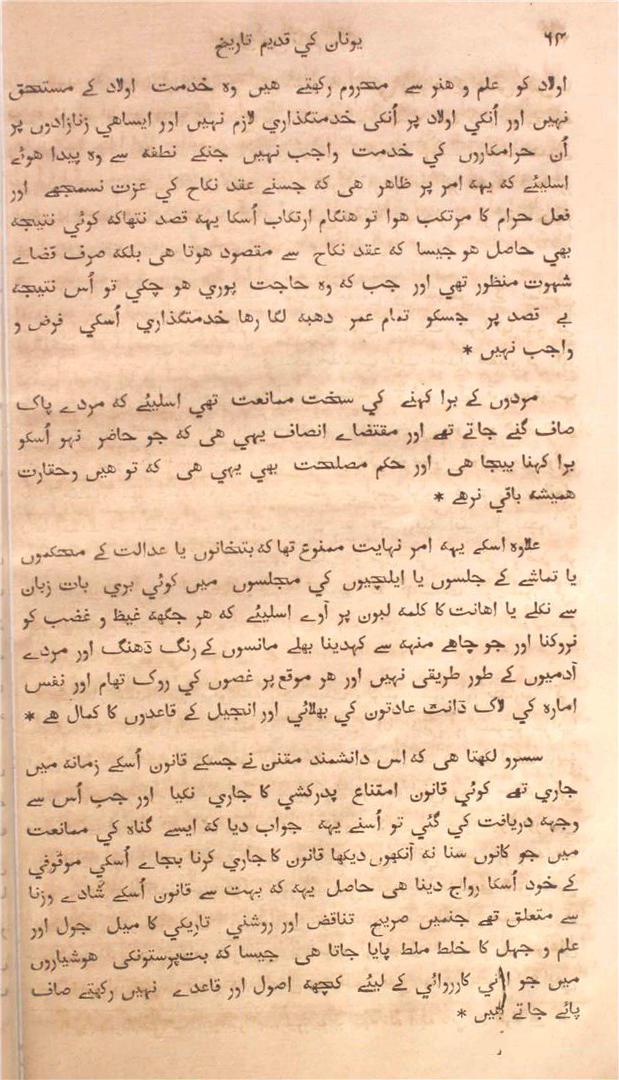 ۶۴ یونان کي قدیم تاریخ
اولاد کو علم و هنر سے محروم رکھتے هیں وہ خدمت اولاد کے مستحق
نہیں اور اُنکي اولاد پر اُنکی خدمتگذاري لازم نہیں اور ایساهي زنازادوں پر
اُن حرامکاروں کي خدمت واجب نہیں جنکے نطفه سے وہ پیدا هوئے
اسلیئے که یہه امر پر ظاهر هی که جسنے عقد نکاح کي عزت نسمجھے اور
فعل حرام کا مرتکب هوا تو هنگام ارتکاب اُسکا یہه قصد نتھاکه کوئي نتیجه
بھي حاصل هو جیسا که عقد نکاح سے مقصود هوتا هی بلکه صرف قضاے
شہوت منظور تھي اور جب که وہ حاجت پوري هو چکي تو اُس نتیجه
بے قصد پر جسکو تمام عمر دهبه لگا رها خدمتگذاري اُسکي فرض و
واجب نہیں *
مردوں کے برا کہنے کي سخت ممانعت تھي اسلیئے که مردے پاک
صاف گنے جاتے تھے اور مقتضاے انصاف یہي هی که جو حاضر نہو اُسکو
برا کہنا بیجا هی اور حکم مصلحت بھي یہي هی که تو هیں وحقارت
همیشه باقي نرهے *
علاوہ اسکے یہه امر نہایت ممنوع تھا که بتخانوں یا عدالت کے محکموں
یا تماشے کے جلسوں یا ایلچیوں کي مجلسوں میں کوئي بري بات زبان
سے نکلے یا اهانت کا کلمه لبون پر آوے اسلیئے که هر جگهه غیظ و غضب کو
نروکنا اور جو چاهے منہه سے کہدینا بھلے مانسوں کے رنگ ڈهنگ اور مردے
آدمیوں کے طور طریقی نہیں اور هر موقع پر غصوں کي روک تھام اور نفس
امارہ کي لاک ڈانٹ عادتون کي بھلائي اور انجیل کے قاعدوں کا کمال هے *
سسرو لکھتا هی که اس دانشمند مقنن نے جسکے قانون اُسکے زمانه میں
جاري تھے کوئي قانون امتناع پدرکشي کا جاري نکیا اور جب اُس سے
وجهه دریافت کي گئي تو اُسنے یہه جواب دیا که ایسے گناہ کي ممانعت
میں جو کانوں سنا نه آنکھوں دیکھا قانون کا جاري کرنا بجاے اُسکي موقوفي
کے خود اُسکا رواج دینا هی حاصل یہه که بہت سے قانون اُسکے شادے وزنا
سے متعلق تھے جنمیں صریح تناقض اور روشني تاریکي کا میل جول اور
علم و جہل کا خلط ملط پایا جاتا هی جیسا که بت‌پرستونکی هوشیاروں
میں جو اپني کارروائي کے لیئے کچھه اصول اور قاعدے نہیں رکھتے صاف
پائے جاتے هیں *